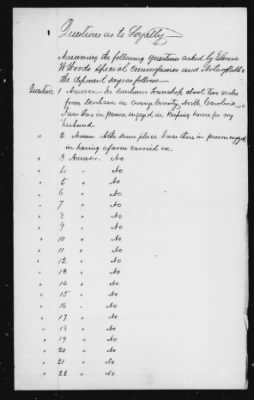 Questions as to Loyalty
Answering the following questions asked by Elihue
W Woods Special commissioner and Notary Public
the deponent says as follows
Question 1 Answer - In Durham Township about two miles
from Durham in Orange County North Carolina
I was there in person engaged in keeping house for my
husband
" 2 Answer At the same place I was there in person engaged
in having a farm carried on
" 3 Answer No
" 4 " No
" 5 " No
" 6 " No
" 7 " No
" 8 " No
" 9 " No
" 10 " No
" 11 " No
" 12 " No
" 13 " No
" 14 " No
" 15 " No
" 16 " No
" 17 " No
" 18 " No
" 19 " No
" 20 " No
" 21 " No
" 22 " No